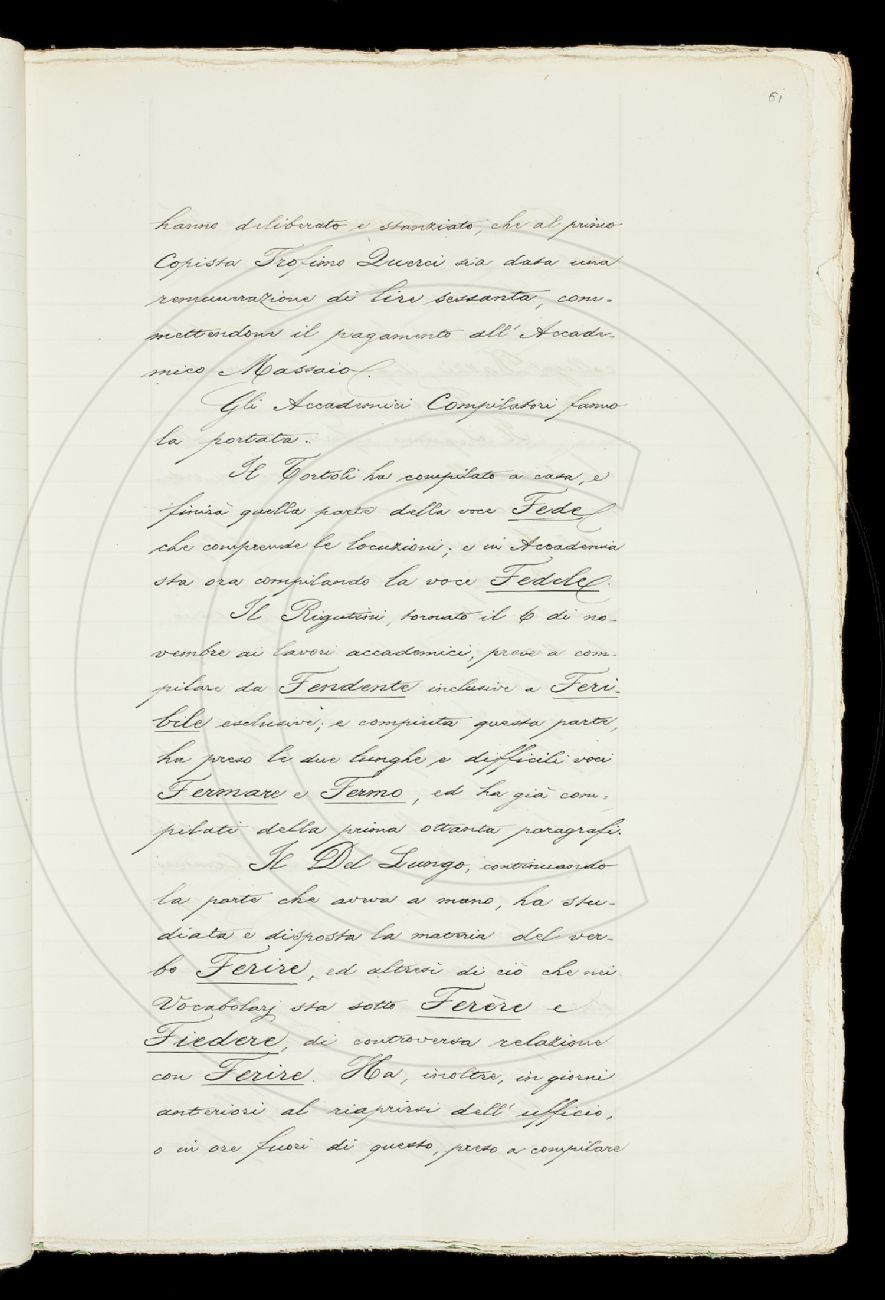 61
hanno deliberato e stanziato, che al primo
Copista Trofimo Querci sia data una
remunerazione di lire sessanta, com-
mettendone il pagamento all' Accade-
mico Massaio.
Gli Accademici Compilatori fanno
la portata.
Il Tortoli ha compilato a casa, e
finirà quella parte della voce Fede
che comprende le locuzioni; e in Accademia
sta ora compilando la voce Fedele.
Il Rigutini, tornato il 6 di no-
vembre ai lavori accademici, prese a com-
pilare da Fendente inclusive a Feri-
bile esclusive; e compiuta questa parte,
ha preso le due lunghe e difficili voci
Fermare e Fermo, ed ha già com-
pilati della prima ottanta paragrafi.
Il Del Lungo, continuando
la parte che aveva a mano, ha stu-
diata e disposta la materia del ver-
bo Ferire, ed altresì di ciò che nei
Vocabolarj sta sotto Ferère e
Fiedere, di controversa relazione
con Ferire. Ha, inoltre, in giorni
anteriori al riaprirsi dell' ufficio,
o in ore fuori di questo, preso a compilare